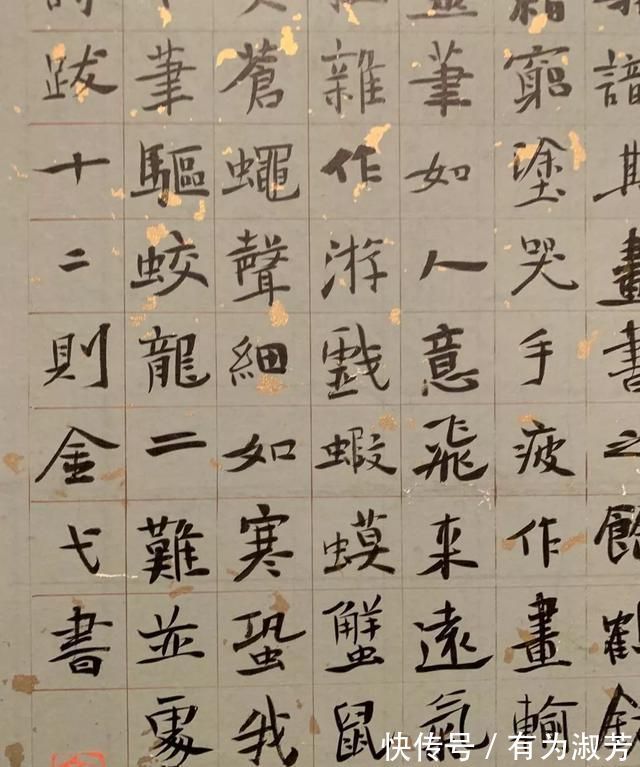 畫書之餘鶴銘
籍窮塗哭手疲作畫輸
筆如人意飛來遠氣
雜作游戲蝦蟆蟹鼠
蒼蠅聲細如寒蛩我
筆驅蛟龍二難並處
跋十二則金弋書
快传号/有为淑芳